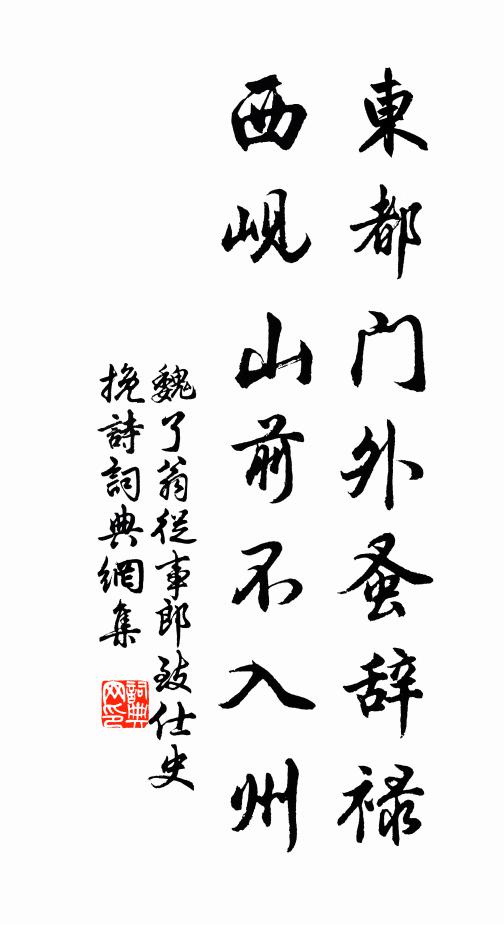 東都门外蚤辞禄
西岘山前不入州
魏了翁从事郎致仕史
挽詩詞典網集
詞典网印